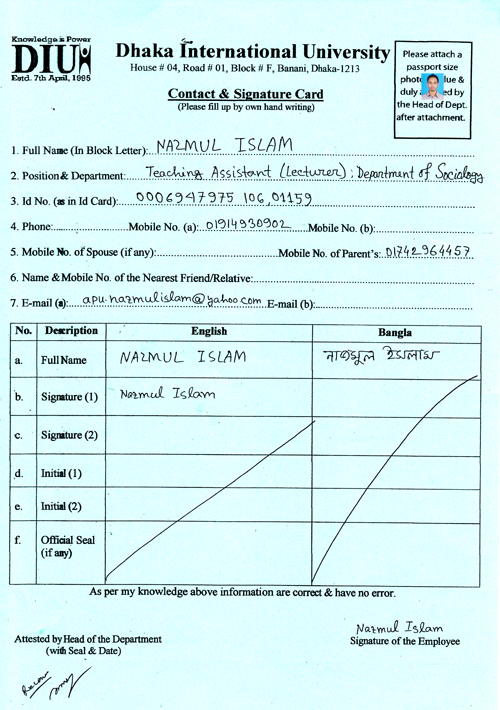 Knowledge is Power
DIU
Estd. 7th April, 1995
Dhaka International University
House # 04, Road # 01, Block # F, Banani, Dhaka-1213
Contact & Signature Card
(Please fill up by own hand writing)
Please attach a
passport size
photo glue &
duly ed by
the Head of Dept.
after attachment.
1. Full Name (In Block Letter): NAZMUL ISLAM
2. Position & Department: Teaching Assistant (Lecturer); Department of Sociology
3. Id No. (as in Id Card): 0006947975 106,01159
4. Phone: Mobile No. (a): 01914930902 Mobile No. (b):
5. Mobile No. of Spouse (if any): Mobile No. of Parent's: 01742964457
6. Name & Mobile No. of the Nearest Friend/Relative:
7. E-mail (a): apu.nazmulislam@yahoo.com E-mail (b):
No. Description English Bangla
a. Full Name NAZMUL ISLAM নাজমুল ইসলাম
b. Signature (1) Nazmul Islam
c. Signature (2)
d. Initial (1)
e. Initial (2)
f. Official Seal
(if any)
As per my knowledge above information are correct & have no error.
Attested by Head of the Department
(with Seal & Date)
Nazmul Islam
Signature of the Employee